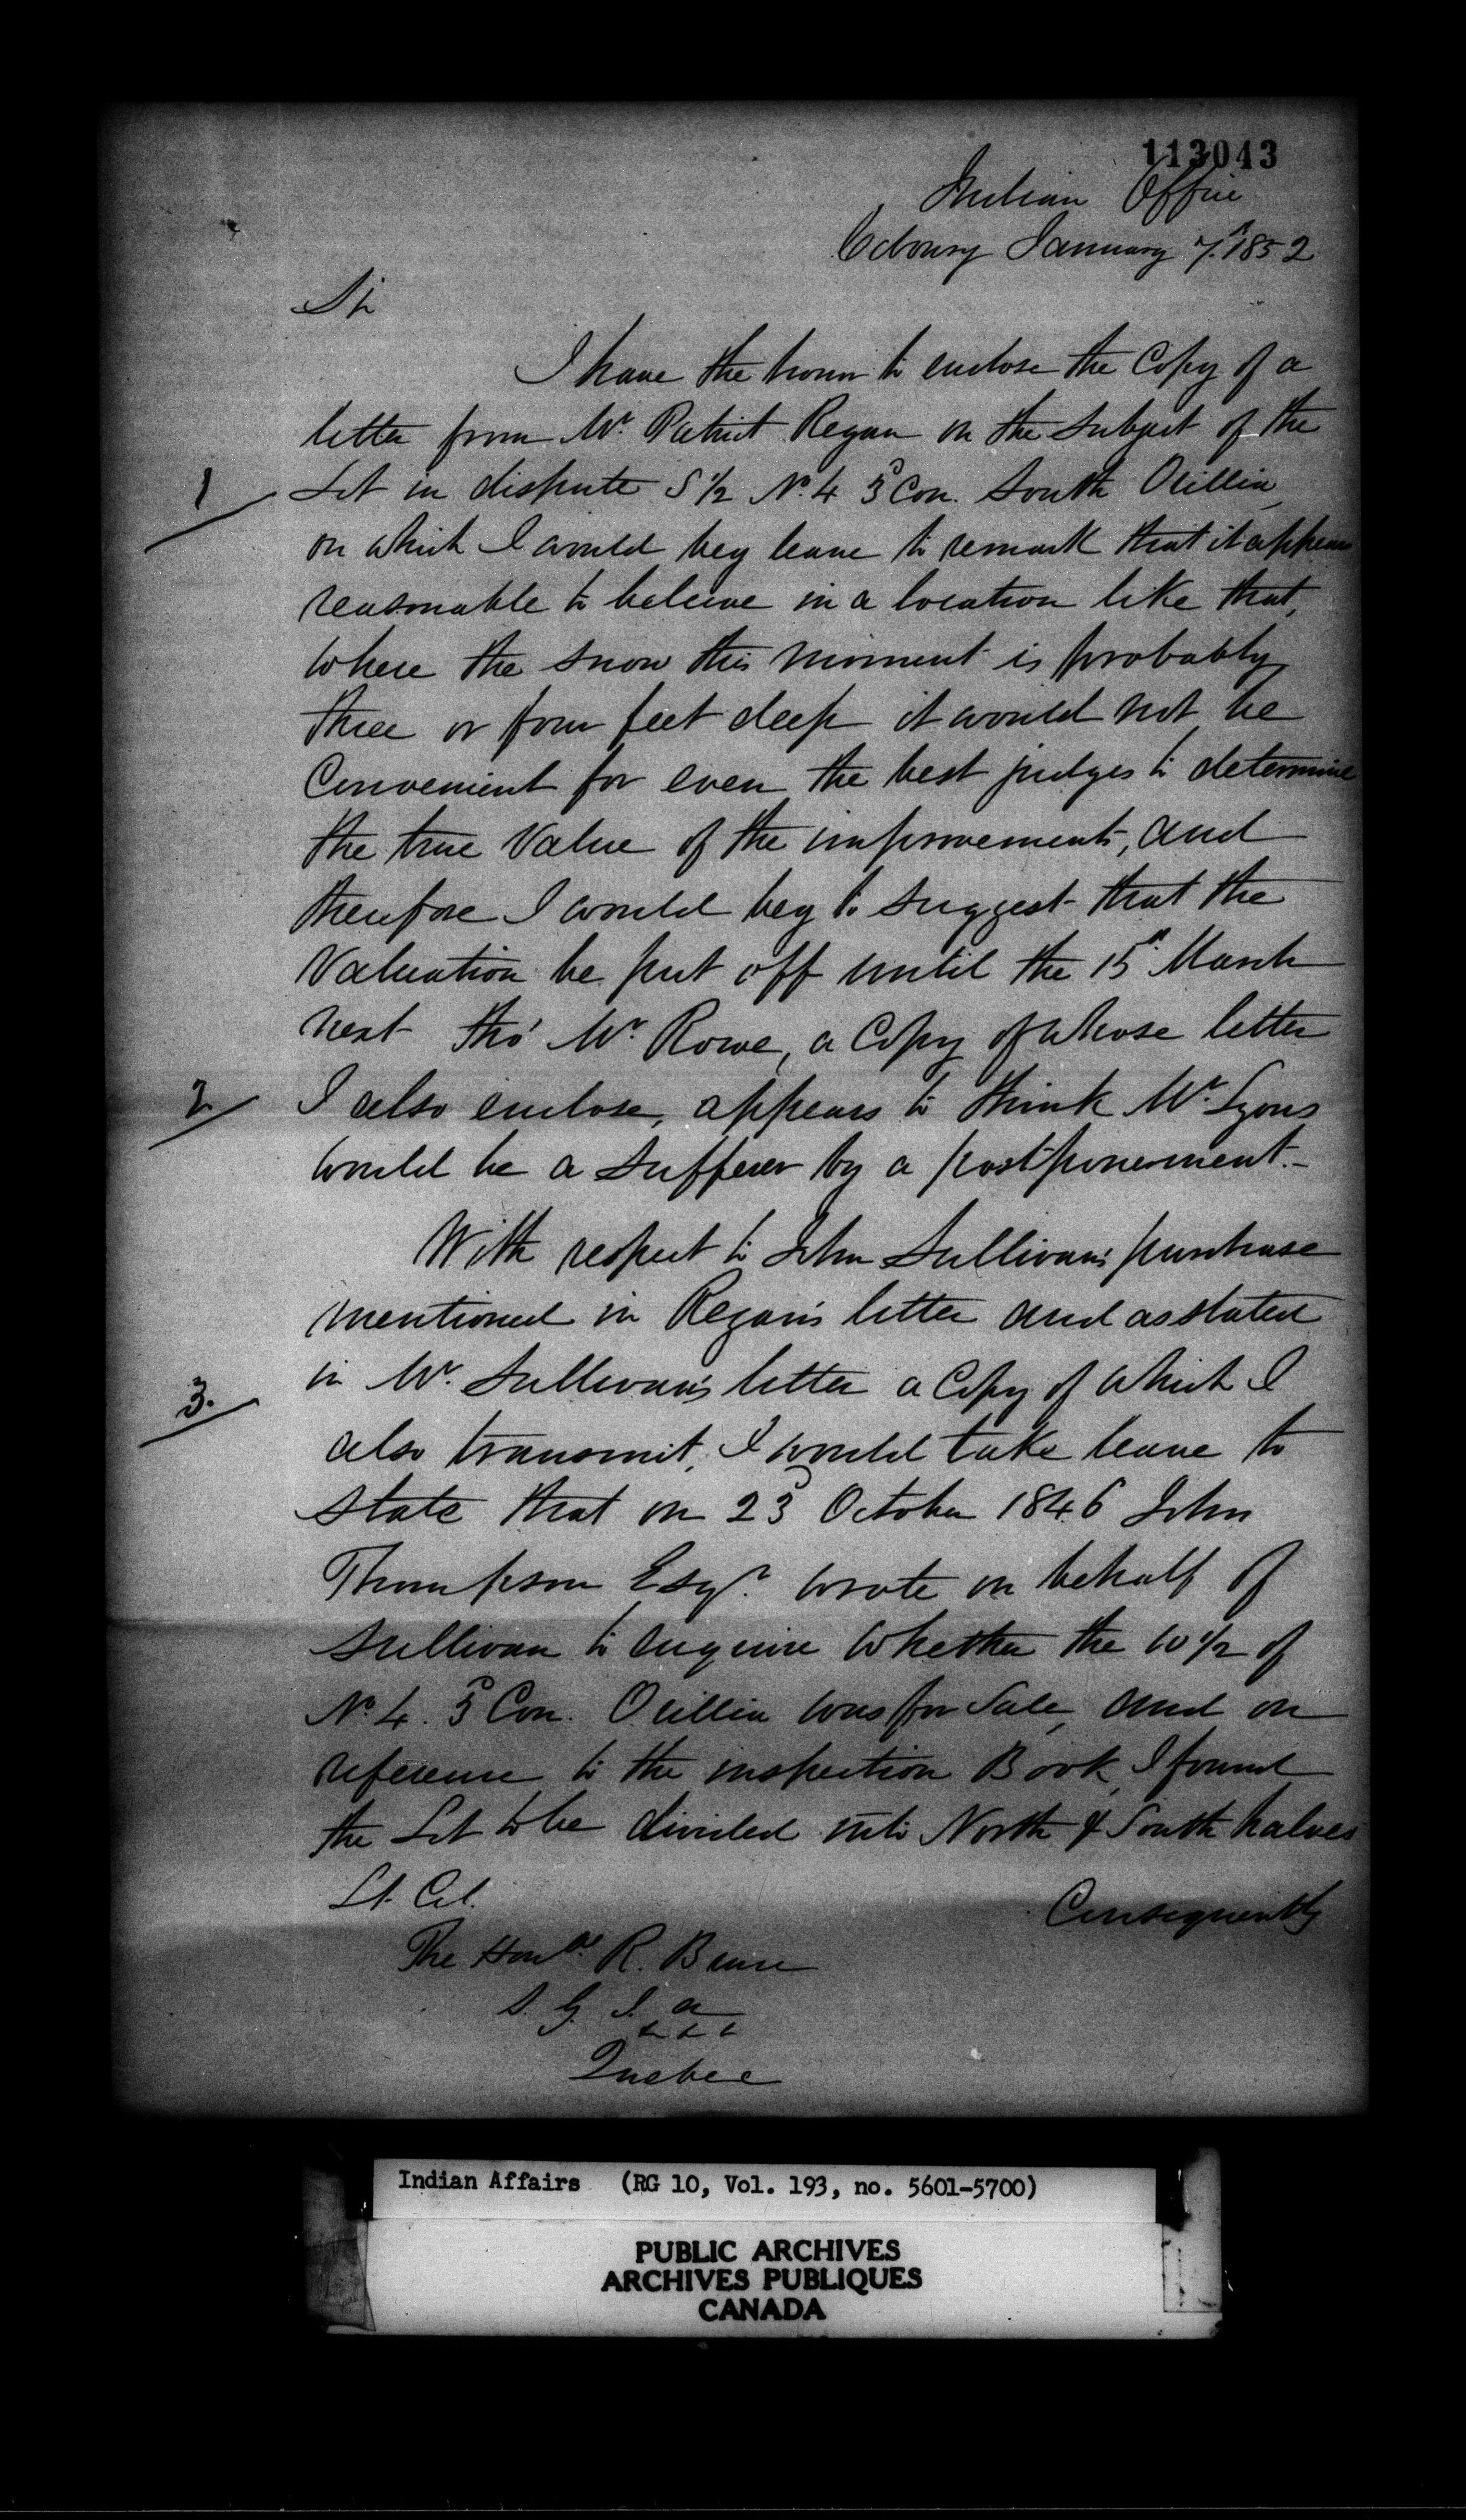 113043
Indian Office
Cobourg January 7th 1852
Sir
I have the honor to enclose the Copy of a
letter from Mr. Patrick Regan on the subject of the
1 Lot in dispute S ½ No. 4 3d Con. South Orillia
on which I would beg leave to remark that it appears
reasonable to beleive in a location like that,
where the snow this moment is probably
three or four feet deep it would not be
Convenient for even the best judges to determine
the true Value of the improvements, and
therefore I would beg to suggest that the
Valuation be put off until the 15th March
next tho' Mr. Rowe, a Copy of whose letter
2 I also enclose, appears to think Mr. Lyons
would be a sufferer by a postponement.-
With respect to John Sullivan's purchase
mentioned in Regan's letter and as stated
3. in Mr. Sullivan's letter a Copy of which I
also transmit, I would take leave to
state that on 23d October 1846 John
Thompson Esqr. wrote on behalf of
Sullivan to enquire whether the W ½ of
No. 4. 3d Con. Orillia was for Sale, and on
reference to the inspection Book, I found
the Lot to be divided into North & South halves
Consequently
Lt. Col.
The Honble. R. Bruce
S. G. I. A
&c &c &c
Quebec
Indian Affairs (RG 10, Vol. 193, no. 5601-5700)
PUBLIC ARCHIVES
ARCHIVES PUBLIQUES
CANADA